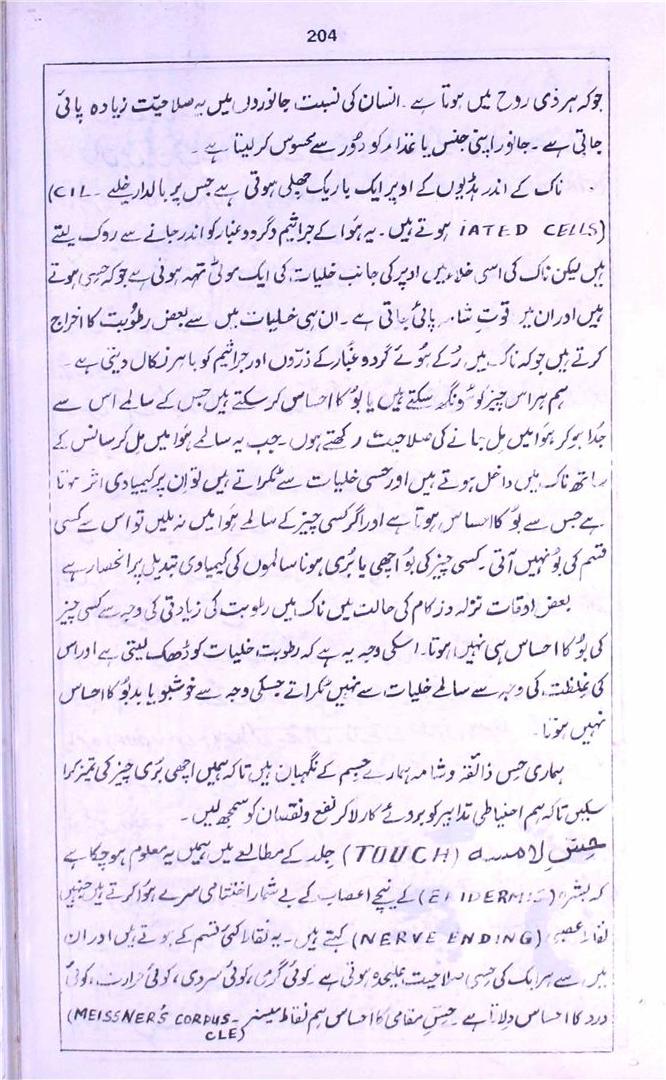 204
جو کہ ہر ذی روح میں ہوتا ہے۔ انسان کی نسبت جانوروں میں یہ صلاحیّت زیادہ پائی
جاتی ہے۔ جانور اپنی جنس یا غذاء کو دُور سے محسوس کر لیتا ہے۔
ناک کے اندر ہڈیوں کے اوپر ایک باریک جھلی ہوتی ہے جس پر بالدار خلیے۔ (CIL
IATED CELLS) ہوتے ہیں۔ یہ ہوا کے جراثیم و گرد و غبار کو اندر جانے سے روک لیتے
ہیں لیکن ناک کی اسی خلاء میں اوپر کی جانب خلیات کی ایک موٹی تہہ ہوتی ہے جو کہ حِسی ہوتے
ہیں اور ان میں قوتِ شامہ پائی جاتی ہے۔ ان ہی خلیات میں سے بعض رطُوبت کا اخراج
کرتے ہیں جو کہ ناک میں رُکے ہُوئے گرد و غبار کے ذرّوں اور جراثیم کو باہر نکال دیتی ہے۔
ہم ہر اس چیز کو سُونگھ سکتے ہیں یا بُو کا احساس کر سکتے ہیں جس کے سالمے اس سے
جُدا ہو کر ہوَا میں مل جانے کی صلاحیت رکھتے ہوں۔ جب یہ سالمے ہوَا میں مل کر سانس کے
ساتھ ناک میں داخل ہوتے ہیں اور حِسی خلیات سے ٹکراتے ہیں تو اِن پر کیمیادی اثر ہوتا
ہے جس سے بُو کا احساس ہوتا ہے اور اگر کسی چیز کے سالمے ہوَا میں نہ ملیں تو اس سے کسی
قسم کی بُو نہیں آتی۔ کسی چیز کی بُو اچھی یا بُری ہونا سالموں کی کیمیاوی تبدیلی پر انحصار ہے
بعض اوقات نزلہ و زکام کی حالت میں ناک میں رطوبت کی زیادتی کی وجہ سے کسی چیز
کی بُو کا احساس ہی نہیں ہوتا۔ اسکی وجہ یہ ہے کہ رطوبت خلیات کو ڈھک لیتی ہے اور اس
کی غلِظت کی وجہ سے سالمے خلیات سے نہیں ٹکراتے جسکی وجہ سے خوشبو یا بدبُو کا احساس
نہیں ہوتا۔
ہماری حِس ذائقہ و شامہ ہمارے جسم کے نگہبان ہیں تاکہ ہمیں اچھی بُری چیز کی تمیز کرا
سکیں تاکہ ہم احتیاطی تدابیر کو بروئے کار لا کر نفع و نقصان کو سمجھ لیں۔
حِسّ لامسہ (TOUCH) جِلد کے مطالعے میں ہمیں یہ معلوم ہو چکا ہے
کہ بشرہ (EPIDERMIS) کے نیچے اعصاب کے بے شمار اختتامی سرے ہوا کرتے ہیں جنہیں
نقاط عصبی (NERVE ENDING) کہتے ہیں۔ یہ نقاط کئی قسم کے ہوتے ہیں اور ان
میں سے ہر ایک کی حِسی صلاحیت علیحدہ ہوتی ہے۔ کوئی گرمی، کوئی سردی، کوئی حرارت، کوئی
درد کا احساس دلاتا ہے۔ حِسِ مقامی کا احساس ہم نقاط میسنر (MEISSNER'S CORPUS-
CLE)